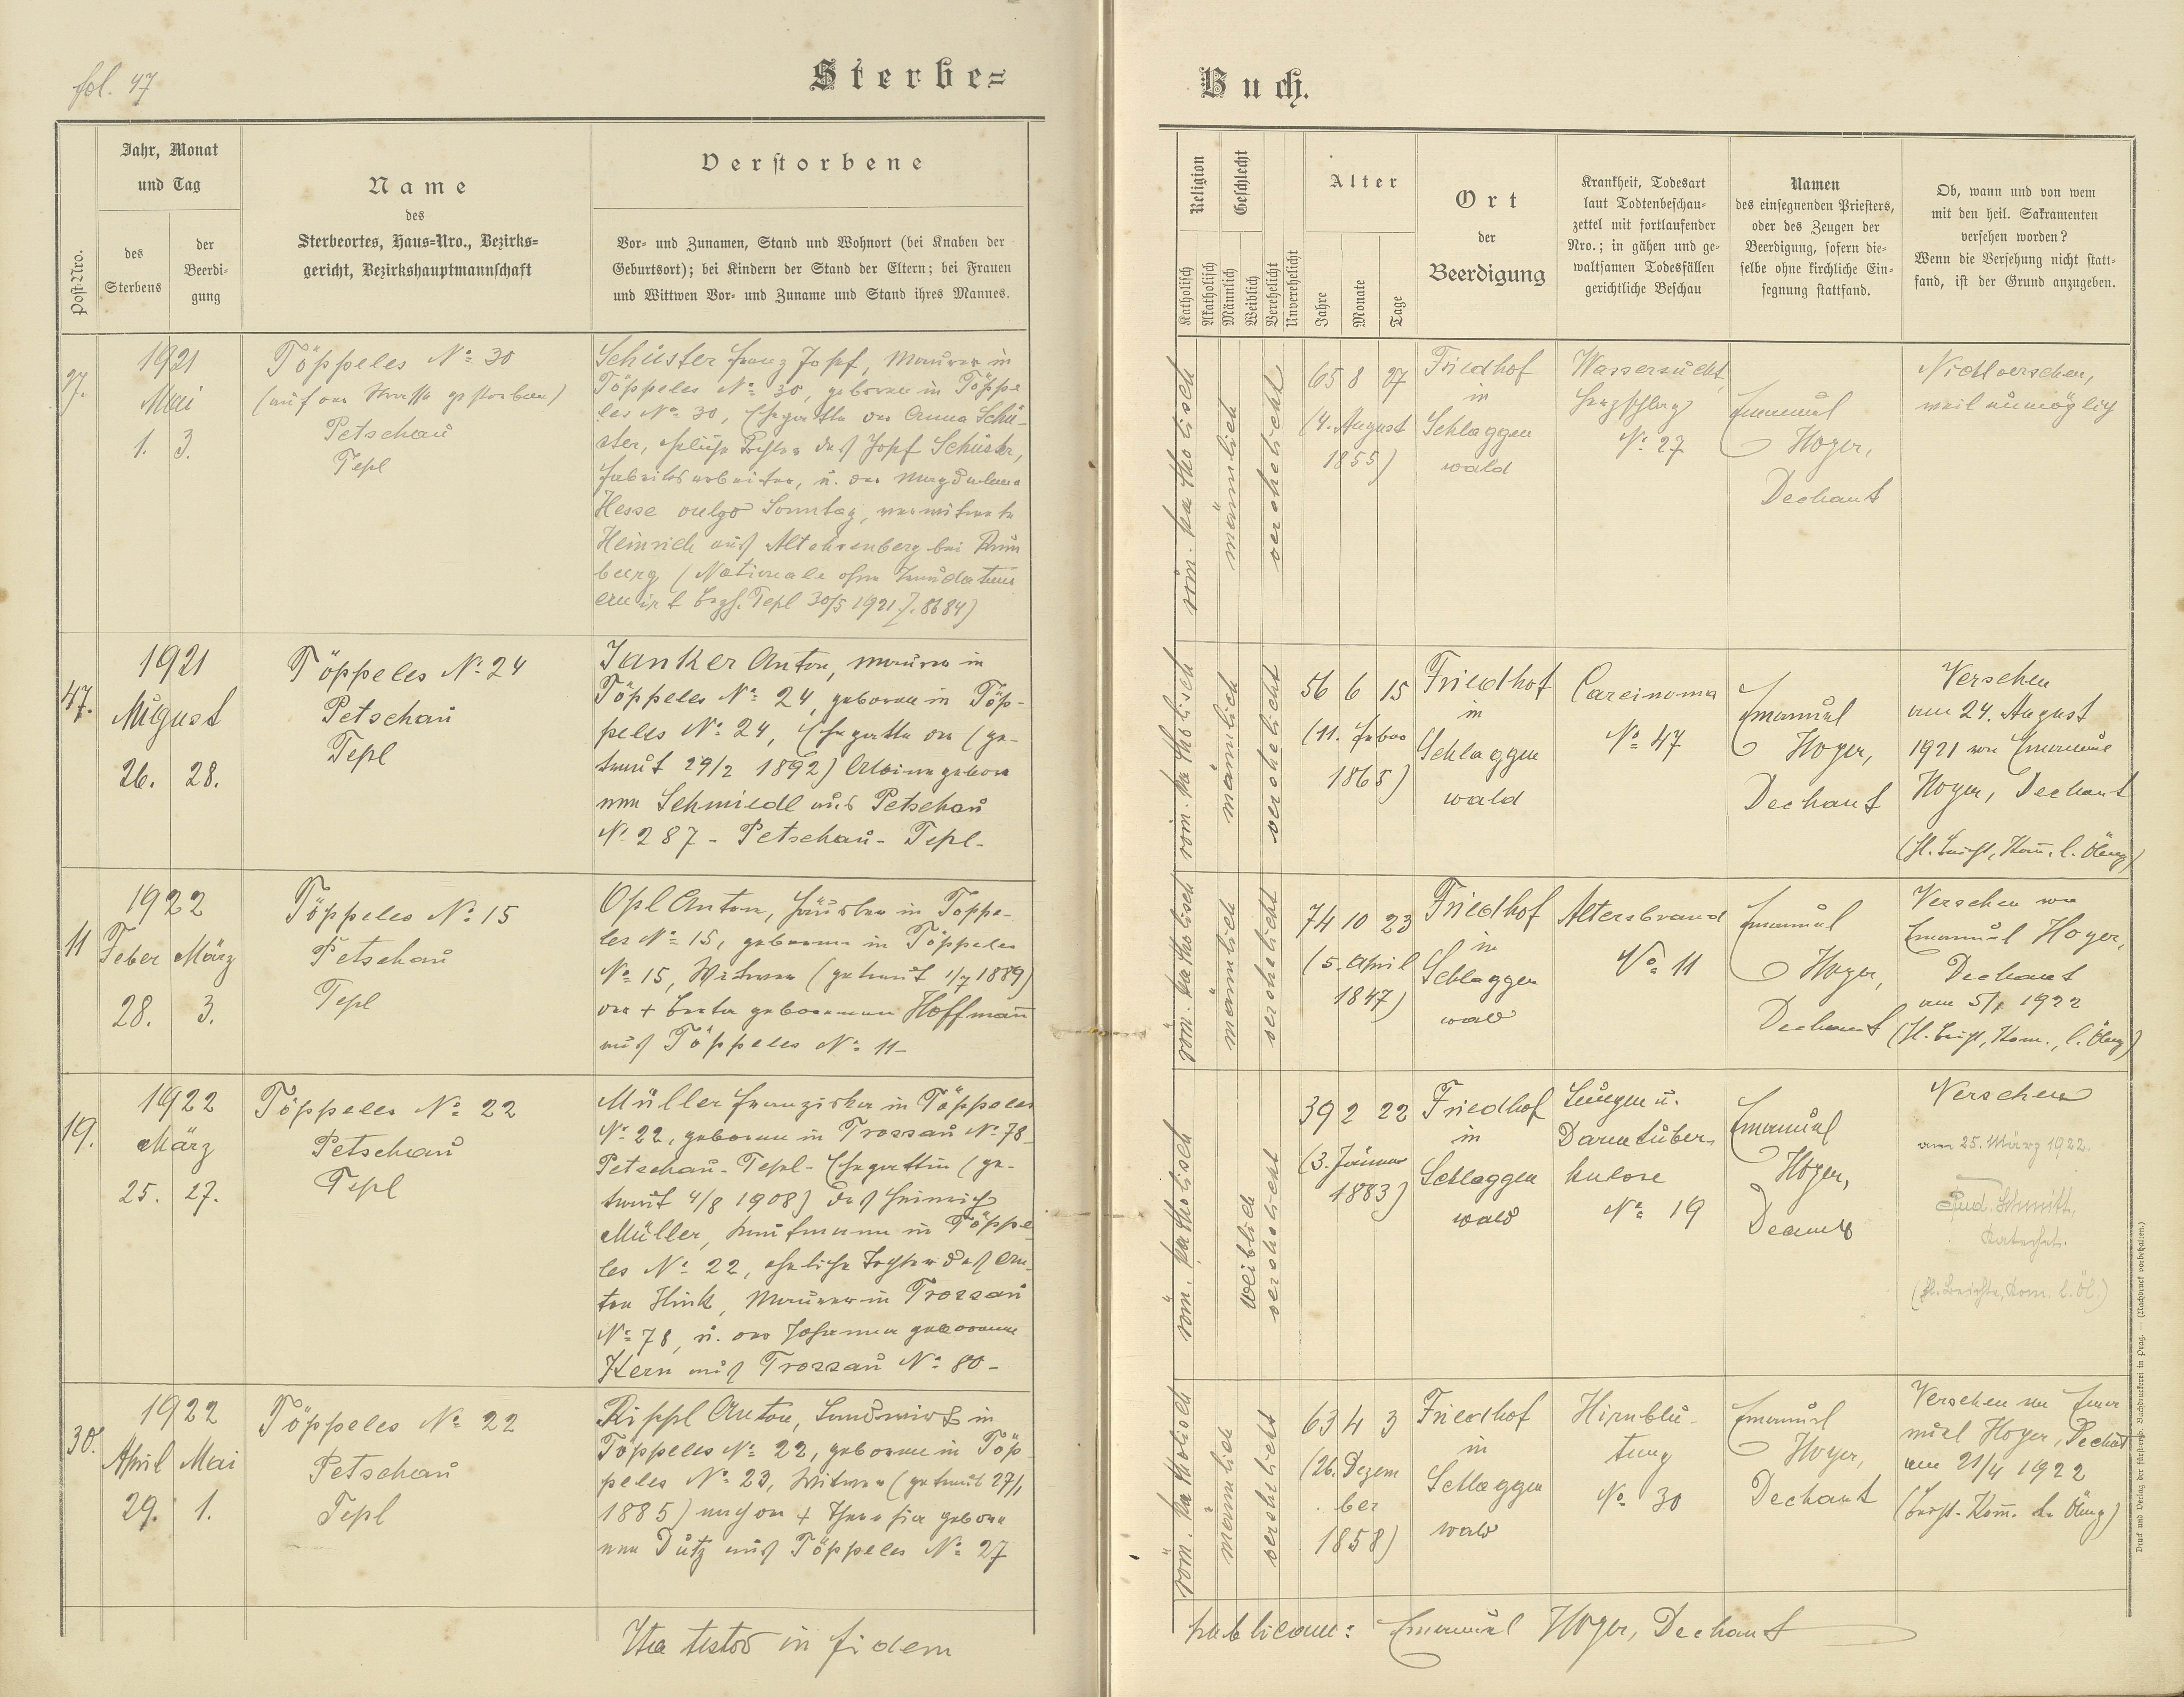 fol. 47
Sterbe=
Buch.
Post-Nro.
Jahr, Monat
und Tag
des
Sterbens
der
Beerdi-
gung
Name
des
Sterbeortes, Haus=Nro., Bezirks=
gericht, Bezirkshauptmannschaft
Verstorbene
Vor- und Zunamen, Stand und Wohnort (bei Knaben der
Geburtsort); bei Kindern der Stand der Eltern; bei Frauen
und Wittwen Vor- und Zuname und Stand ihres Mannes.
Religion
Katholisch
Akatholisch
Geschlecht
Männlich
Weiblich
Verehelicht
Unverehelicht
Alter
Jahre
Monate
Tage
Ort
der
Beerdigung
Krankheit, Todesart
laut Todtenbeschau-
zettel mit fortlaufender
Nro.; in gähen und ge-
waltsamen Todesfällen
gerichtliche Beschau
Namen
des einsegnenden Priesters,
oder des Zeugen der
Beerdigung, sofern die-
selbe ohne kirchliche Ein-
segnung stattfand.
Ob, wann und von wem
mit den heil. Sakramenten
versehen worden?
Wenn die Versehung nicht statt-
fand, ist der Grund anzugeben.
27.
1921
Mai
1. 3.
Töppeles No 30
(auf der Strasse gestorben)
Petschau
Tepl
Schuster Franz Josef, Maurer in
Töppeles No 30, geboren in Töppe
les No 30, Ehegatte der Anna Schu-
ster, des Josef Schuster,
Fabriksarbeiter, u. der Magdalena
Hesse vulgo Sonntag, verwitwete
Heinrich aus Altehrenberg bei Rum
burg (Nationale ohne
Bzgh. Tepl 30/5 1921 Z. 8684)
röm. katholisch
männlich
verehelicht
65 8 27
(4. August
1855)
Friedhof
in
Schlaggen
wald
Wassersucht,
Herzschlag
No 27
Emanuel
Hoyer,
Dechant
Nicht versehen,
weil unmöglich
47.
1921
August
26. 28.
Töppeles No 24
Petschau
Tepl
Janker Anton, Maurer in
Töppeles No 24, geboren in Töp-
peles No 24, Ehegatte der (ge-
traut 29/2 1892) Albine gebore
nen Schmiedl aus Petschau
No 287 - Petschau - Tepl -
röm. katholisch
männlich
verehelicht
56 6 15
(11. Feber
1865)
Friedhof
in
Schlaggen
wald
Carcinoma
No 47
Emanuel
Hoyer,
Dechant
Versehen
am 24. August
1921 von Emanuel
Hoyer, Dechant
(hl. Beicht, Kom. l. Ölung)
11
1922
Feber März
28. 3.
Töppeles No 15
Petschau
Tepl
Opl Anton, Häusler in Töppe-
les No 15, geboren in Töppeles
No 15, Witwer (getraut 1/7 1889)
der + Berta geborenen Hoffmann
aus Töppeles No 11 -
röm. katholisch
männlich
verehelicht
74 10 23
(5. April
1847)
Friedhof
in
Schlaggen
wald
Altersbrand
No 11
Emanuel
Hoyer,
Dechant
Versehen von
Emanuel Hoyer,
Dechant
am 5/1 1922
(hl. Beicht, Kom., l. Ölung)
19.
1922
März
25. 27.
Töppeles No 22
Petschau
Tepl
Müller Franziska in Töppeles
No 22, geboren in Trossau No 78
Petschau - Tepl - Ehegattin (ge-
traut 4/8 1908) des Heinrich
Müller, Kaufmann in Töppe
les No 22, eheliche Tochter des An-
ton Hink, Maurer in Trossau
No 78, u. der Johanna geborene
Kern aus Trossau No 80 -
röm. katholisch
weiblich
verehelicht
39 2 22
(3. Jänner
1883)
Friedhof
in
Schlaggen
wald
Lungen u.
Darmtuber-
kulose
No 19
Emanuel
Hoyer,
Dechant
Versehen
am 25. März 1922.
Rud. Schmidt,
Katechet.
(hl. Beichte, Kom. l. Öl.)
30.
1922
April Mai
29. 1.
Töppeles No 22
Petschau
Tepl
Rippl Anton, Landwirt in
Töppeles No 22, geboren in Töp
peles No 23, Witwer (getraut 27/1
1885) nach der + Theresia gebore
nen Dutz aus Töppeles No 27
röm. katholisch
männlich
verehelicht
63 4 3
(26. Dezem
ber
1858)
Friedhof
in
Schlaggen
wald
Hirnblu-
tung
No 30
Emanuel
Hoyer,
Dechant
Versehen von Ema
nuel Hoyer, Dechant
am 21/4 1922
(Beicht. Kom. l. Ölung)
Ita testor in fidem
publicam: Emanuel Hoyer, Dechant
Druck und Verlag der fürsterzb. Buchdruckerei in Prag. — (Nachdruck vorbehalten.)